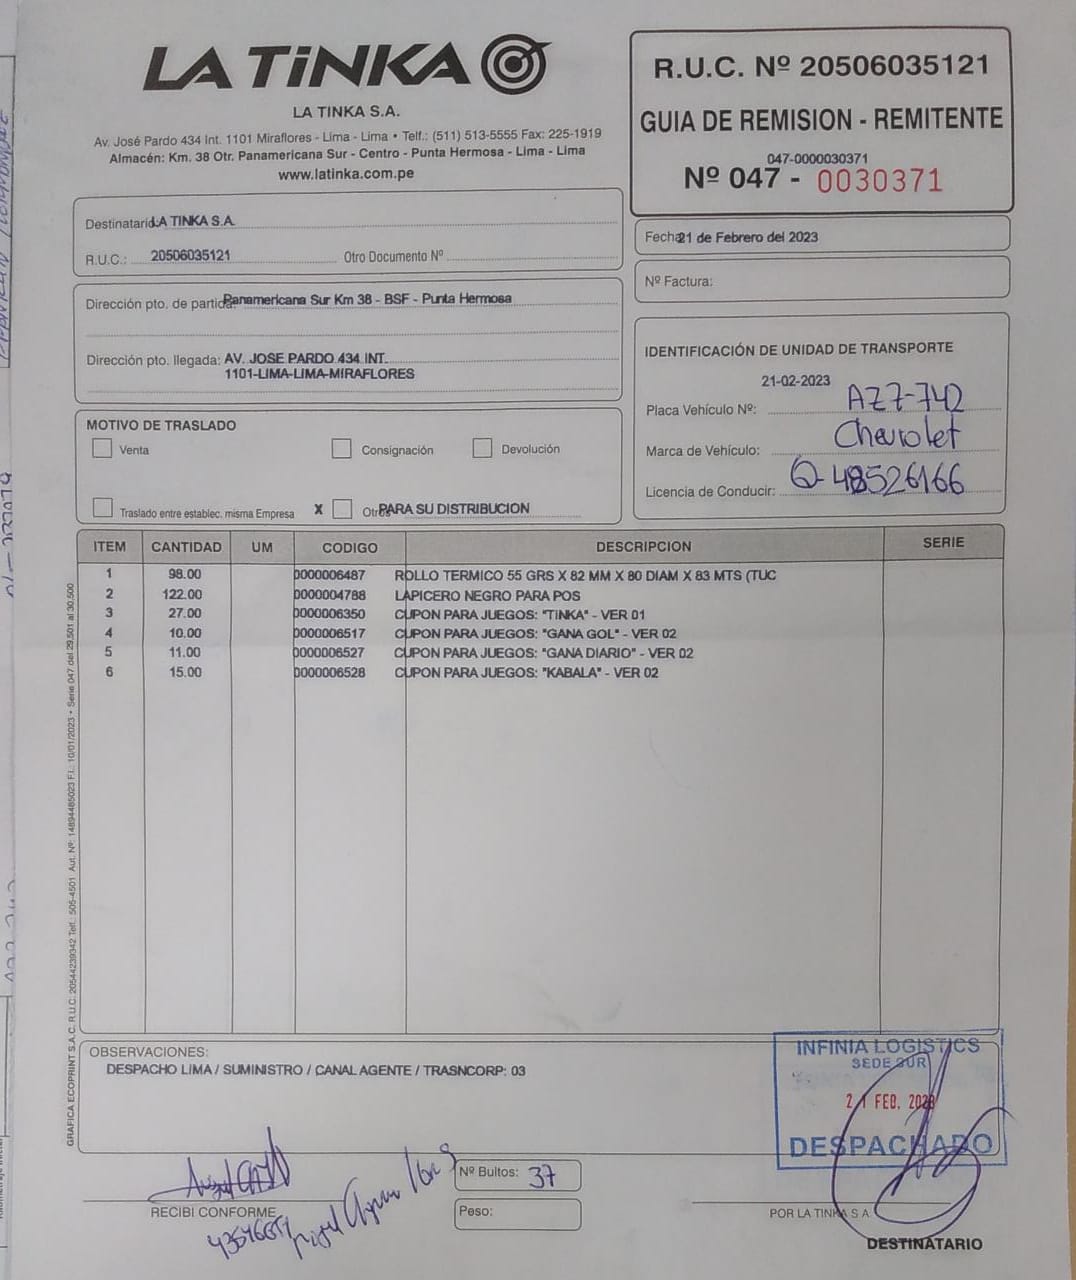 LA TiNKA
LA TINKA S.A.
Av. José Pardo 434 Int. 1101 Miraflores - Lima - Lima • Telf.: (511) 513-5555 Fax: 225-1919
Almacén: Km. 38 Otr. Panamericana Sur - Centro - Punta Hermosa - Lima - Lima
www.latinka.com.pe
R.U.C. Nº 20506035121
GUIA DE REMISION - REMITENTE
047-0000030371
Nº 047 - 0030371
Destinatario: LA TINKA S.A.
R.U.C.: 20506035121 Otro Documento Nº
Fecha: 21 de Febrero del 2023
Nº Factura:
Dirección pto. de partida: Panamericana Sur Km 38 - BSF - Punta Hermosa
Dirección pto. llegada: AV. JOSE PARDO 434 INT.
1101-LIMA-LIMA-MIRAFLORES
IDENTIFICACIÓN DE UNIDAD DE TRANSPORTE
21-02-2023
Placa Vehículo Nº: AZ7-742
Marca de Vehículo: Chevrolet
Licencia de Conducir: Q-48526166
MOTIVO DE TRASLADO
Venta Consignación Devolución
Traslado entre establec. misma Empresa X Otros PARA SU DISTRIBUCION
ITEM CANTIDAD UM CODIGO DESCRIPCION SERIE
1 98.00 0000006487 ROLLO TERMICO 55 GRS X 82 MM X 80 DIAM X 83 MTS (TUC
2 122.00 0000004788 LAPICERO NEGRO PARA POS
3 27.00 0000006350 CUPON PARA JUEGOS: "TINKA" - VER 01
4 10.00 0000006517 CUPON PARA JUEGOS: "GANA GOL" - VER 02
5 11.00 0000006527 CUPON PARA JUEGOS: "GANA DIARIO" - VER 02
6 15.00 0000006528 CUPON PARA JUEGOS: "KABALA" - VER 02
GRAFICA ECOPRINT S.A.C. R.U.C. 20544239342 Telf.: 505-4501 Aut. Nº: 14894485023 F.I.: 10/01/2023 • Serie 047 del 29,501 al 30,500
OBSERVACIONES:
DESPACHO LIMA / SUMINISTRO / CANAL AGENTE / TRASNCORP: 03
INFINIA LOGISTICS
SEDE SUR
21 FEB. 2023
DESPACHADO
Nº Bultos: 37
Peso:
RECIBI CONFORME
POR LA TINKA S A
DESTINATARIO